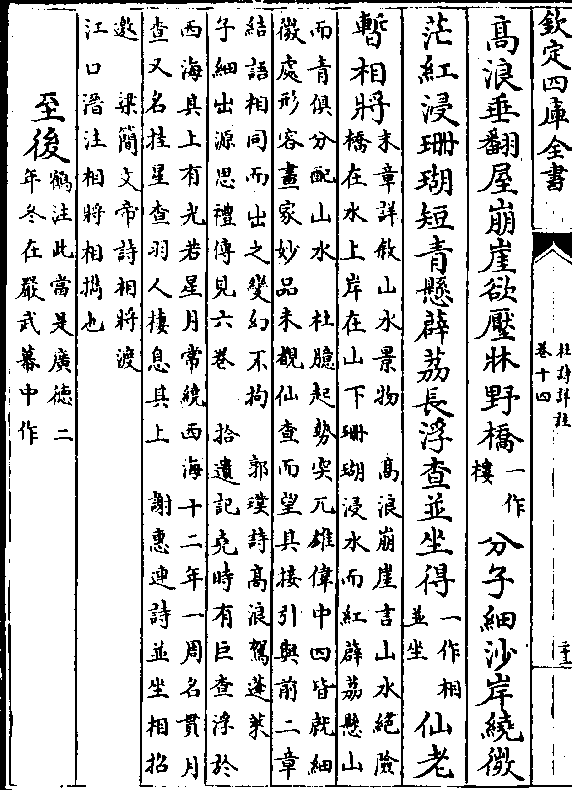 欽定四庫全書
杜詩詳註
卷十四
高浪垂翻屋崩崖欲壓牀野橋一作樓分子細沙岸繞微
茫紅浸珊瑚短青懸薜荔長浮查並坐得一作相並坐仙老
暫相將末章詳敘山水景物　高浪崩崖言山水絕險
橋在水上岸在山下珊瑚浸水而紅薜荔懸山
而青俱分配山水　杜臆起勢突兀雄偉中四皆就細
微處形容畫家妙品末覩仙查而望其接引與前二章
結語相同而出之變幻不拘　郭璞詩高浪駕蓬萊
子細出源思禮傳見六卷　拾遺記堯時有巨查浮於
西海其上有光若星月常繞西海十二年一周名貫月
查又名挂星查羽人棲息其上　謝惠連詩並坐相招
邀　梁簡文帝詩相將渡
江口潛注相將相攜也
至後鶴注此當是廣德二
年冬在嚴武幕中作